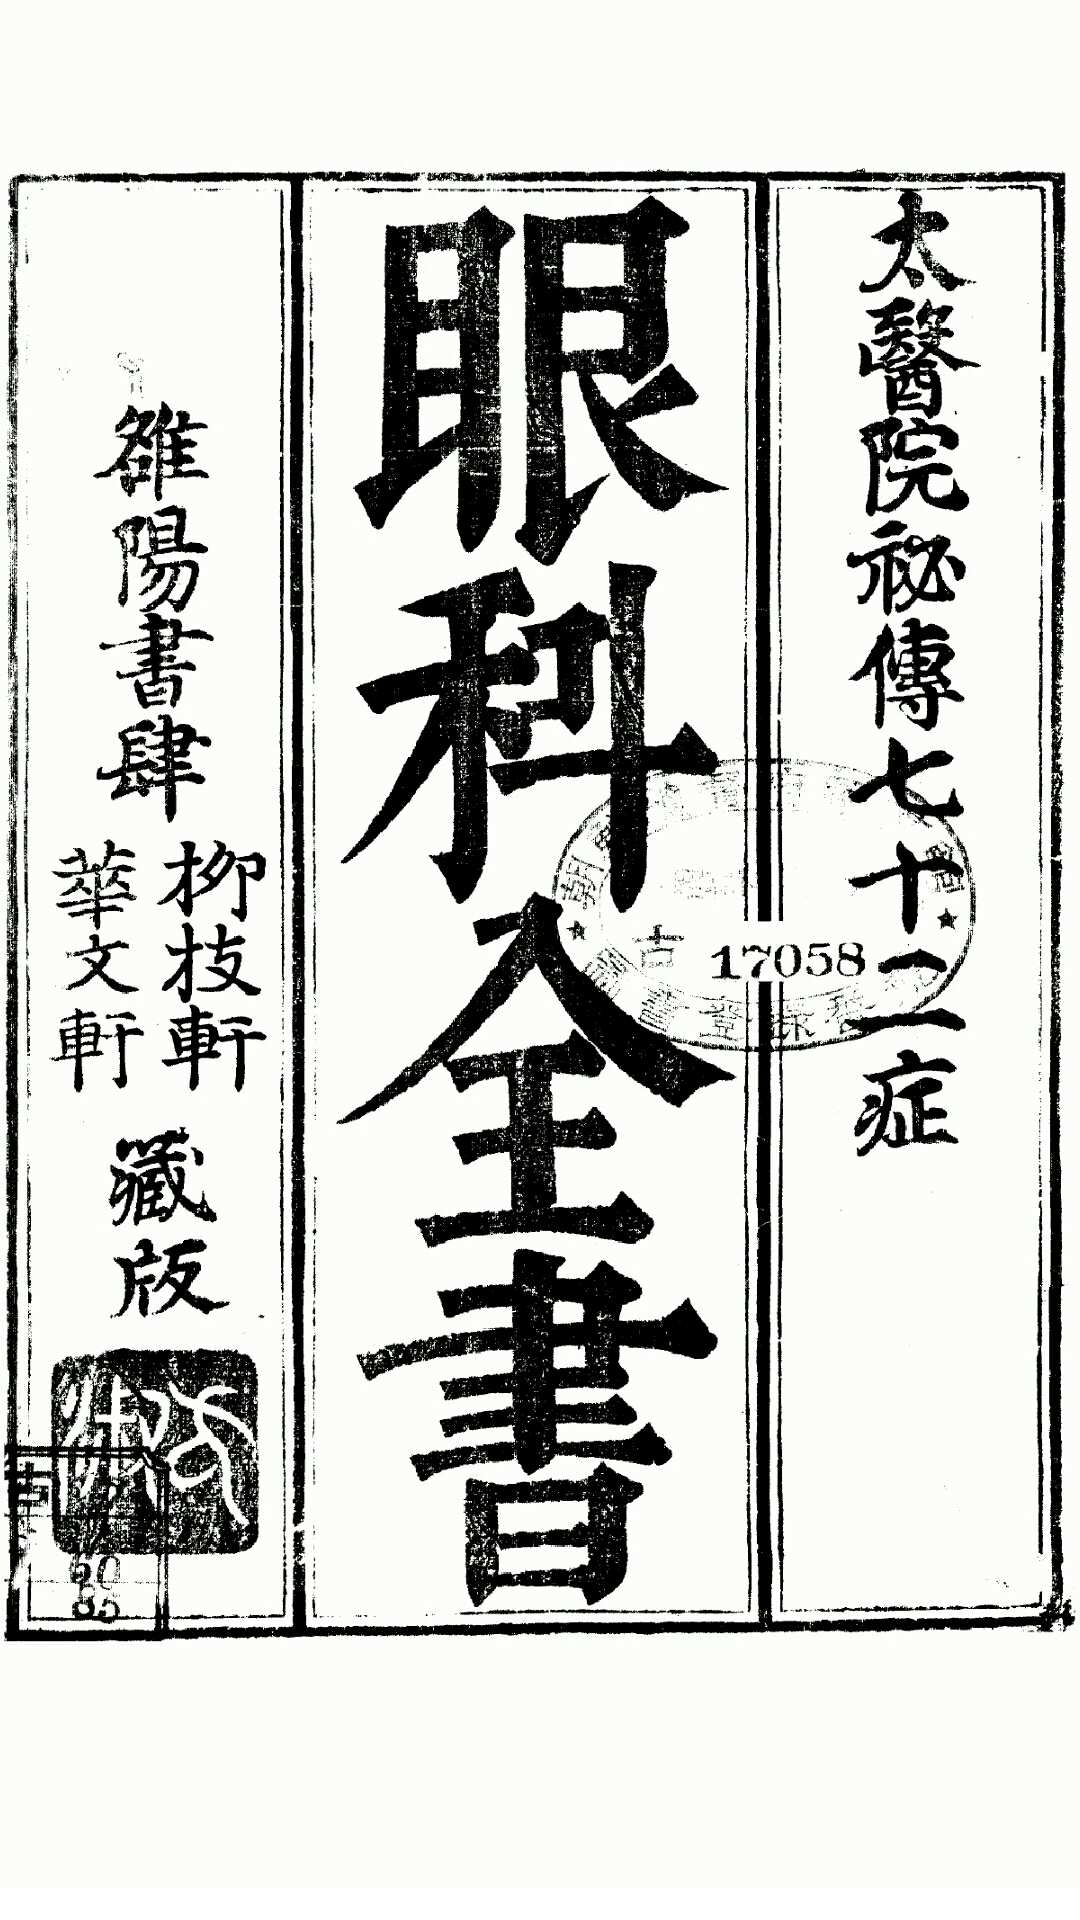 太醫院祕傳七十二症
眼科全書
雒陽書肆
柳枝軒
華文軒
藏版
古 17058